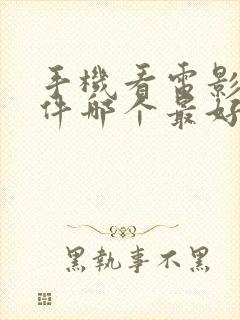 手機看電影
件哪个最好
黑執事不黑